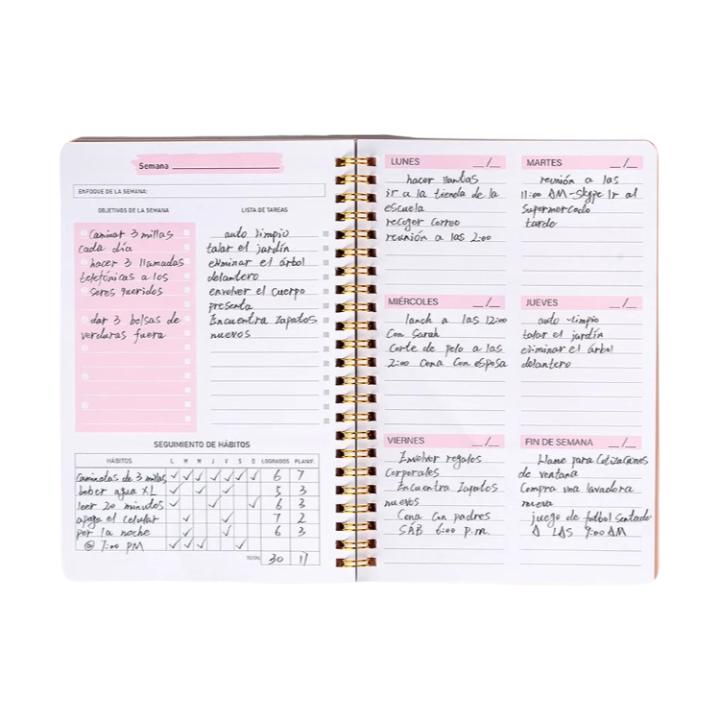 Semana
ENFOQUE DE LA SEMANA:
OBJETIVOS DE LA SEMANA
Caminar 3 millas
cada día
hacer 3 llamadas
telefónicas a los
seres queridos
dar 3 bolsas de
verduras fuera
LISTA DE TAREAS
auto limpio
talar el jardín
eliminar el árbol
delantero
envolver el cuerpo
presenta
Encuentra Zapatos
nuevos
SEGUIMIENTO DE HÁBITOS
HÁBITOS L M M J V S D LOGRADOS PLANIF.
Caminatas de 3 millas ✓ ✓ ✓ ✓ ✓ ✓ ✓ 6 7
beber agua XL ✓ ✓ ✓ 5 3
leer 20 minutos ✓ ✓ ✓ 6 3
apaga el celular ✓ ✓ 7 2
por la noche ✓ ✓ 6 3
@ 7:00 PM ✓ ✓ ✓ ✓
TOTAL 30 17
LUNES __/__
hacer llantas
ir a la tienda de la
escuela
recoger correo
reunión a las 2:00
MARTES __/__
reunión a las
11:00 AM-Skype Ir al
supermercado
tarde
MIÉRCOLES __/__
lanch a las 12:00
Con Sarah
Corte de pelo a las
2:00 Cena Con esposa
JUEVES __/__
auto limpio
talar el jardín
eliminar el árbol
delantero
VIERNES __/__
Envolver regalos
Corporales
Encuentra Zapatos
nuevos
Cena Con padres
SÁB 6:00 p.m.
FIN DE SEMANA __/__
Llame para Cotizaciones
de ventana
Compra una lavadora
nueva
juego de futbol Sentado
A LAS 9:00 AM